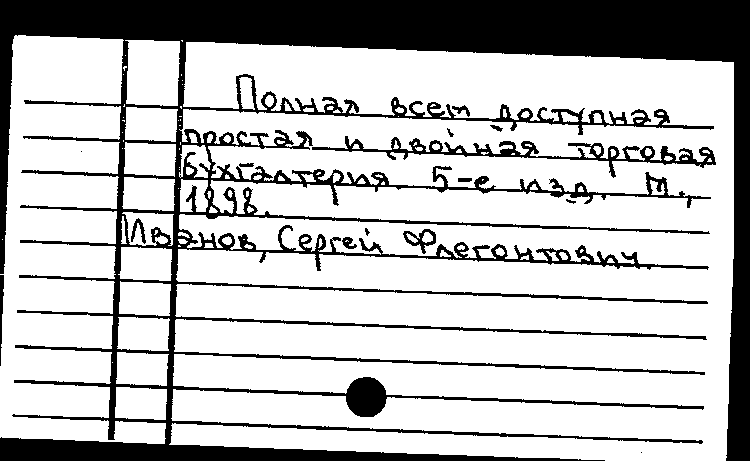 Полная всем доступная
простая и двойная торговая
бухгалтерия. 5-е изд. М.,
1898.
Иванов, Сергей Флегонтович.